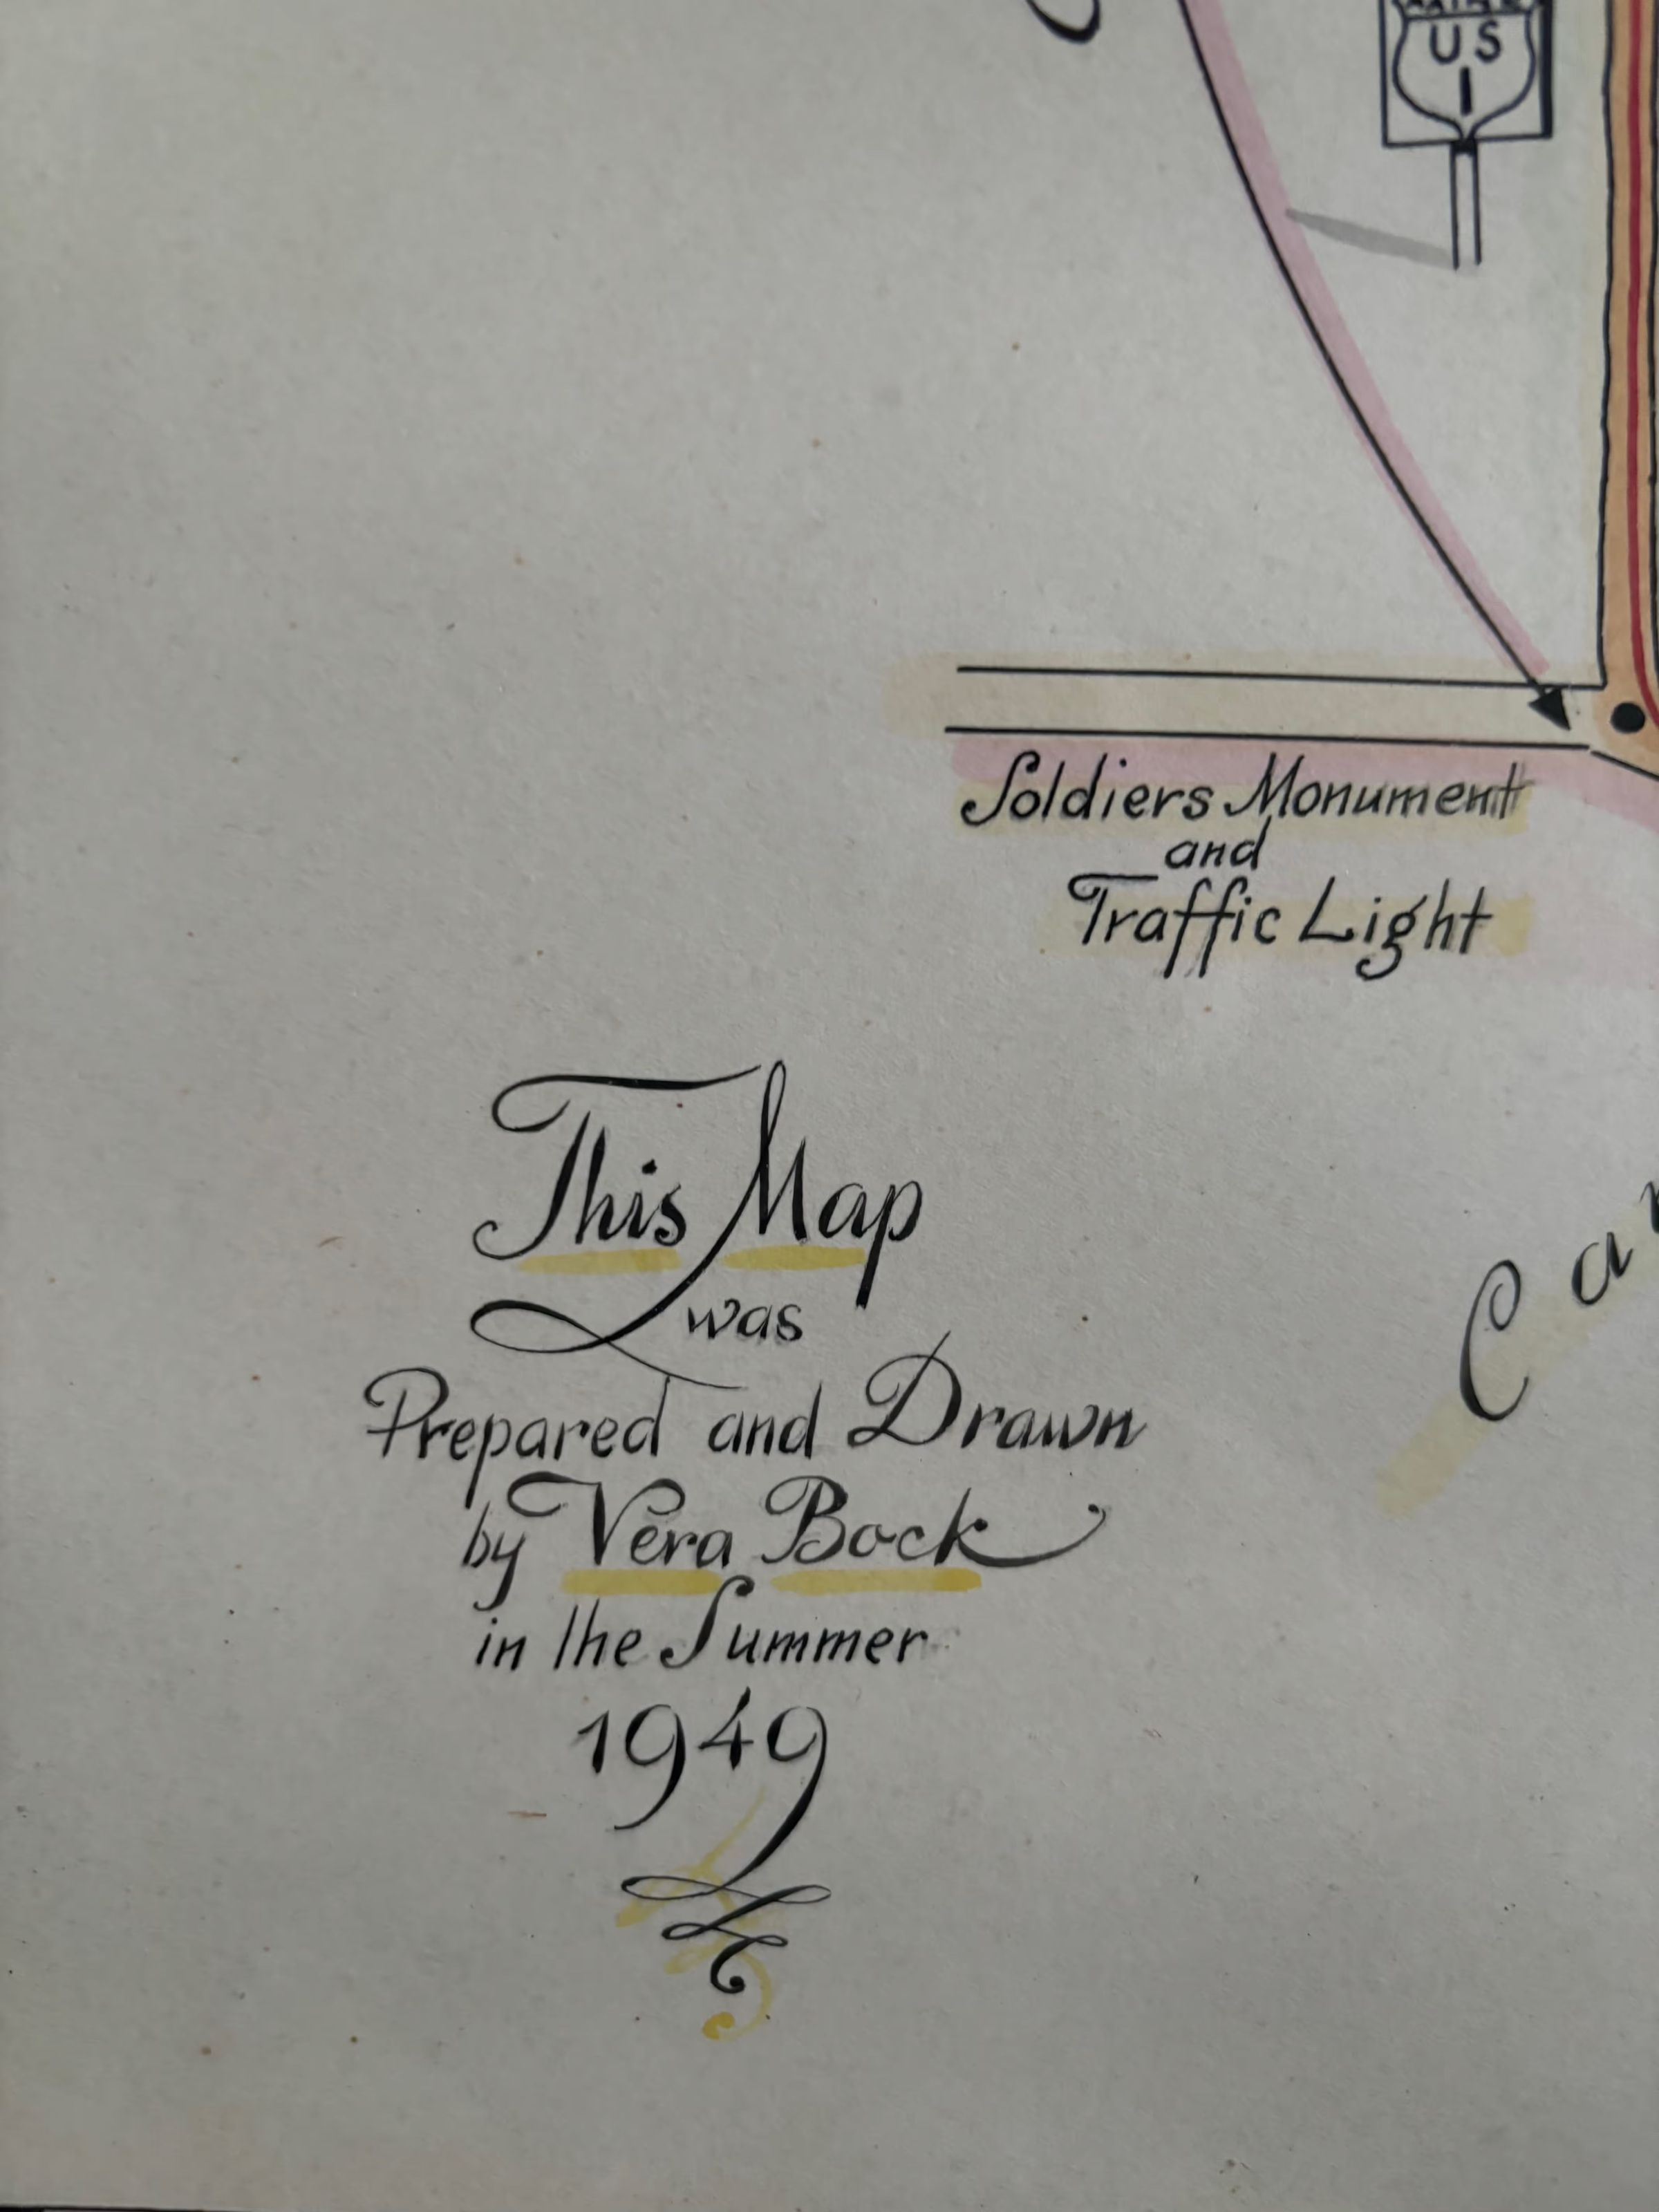 US
1
Soldiers Monument
and
Traffic Light
This Map
was
Prepared and Drawn
by Vera Bock
in the Summer
1949